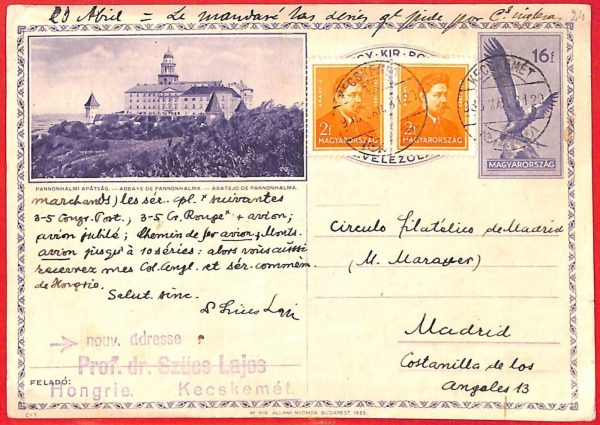 20 Abril = Le mandaré las series qt pide por Cs inglesa
PANNONHALMI APÁTSÁG. — ABBAYE DE PANNONHALMA. — ABATEJO DE PANNONHALMA.
marchands) les sér. cpl.x suivantes
3-5 Congr. Post., 3-5 Cr. Rouge x + avion;
avion jubilé; Chemin de fer avion; Monts.
avion jusqu'à 10 séries; alors vous aussi
recevrez mes Col. Angl. et sér. commém
de Hongrie.
Salut. sinc.
nouv. ddresse
Prof. dr. Szücs Lajos
FELADÓ:
Hongrie. Kecskemét
Cr 1
M. KIR. ÁLLAMI NYOMDA. BUDAPEST. 1933.
ARANY J.
2f
MAGYARORSZÁG
2f
MAGYARORSZÁG
KECSKEMÉT
KECSKEMÉT
16 f
MAGYARORSZÁG
LEVELEZŐLAP
Circulo filatélico de Madrid
Madrid
Costanilla de los
Angeles 13